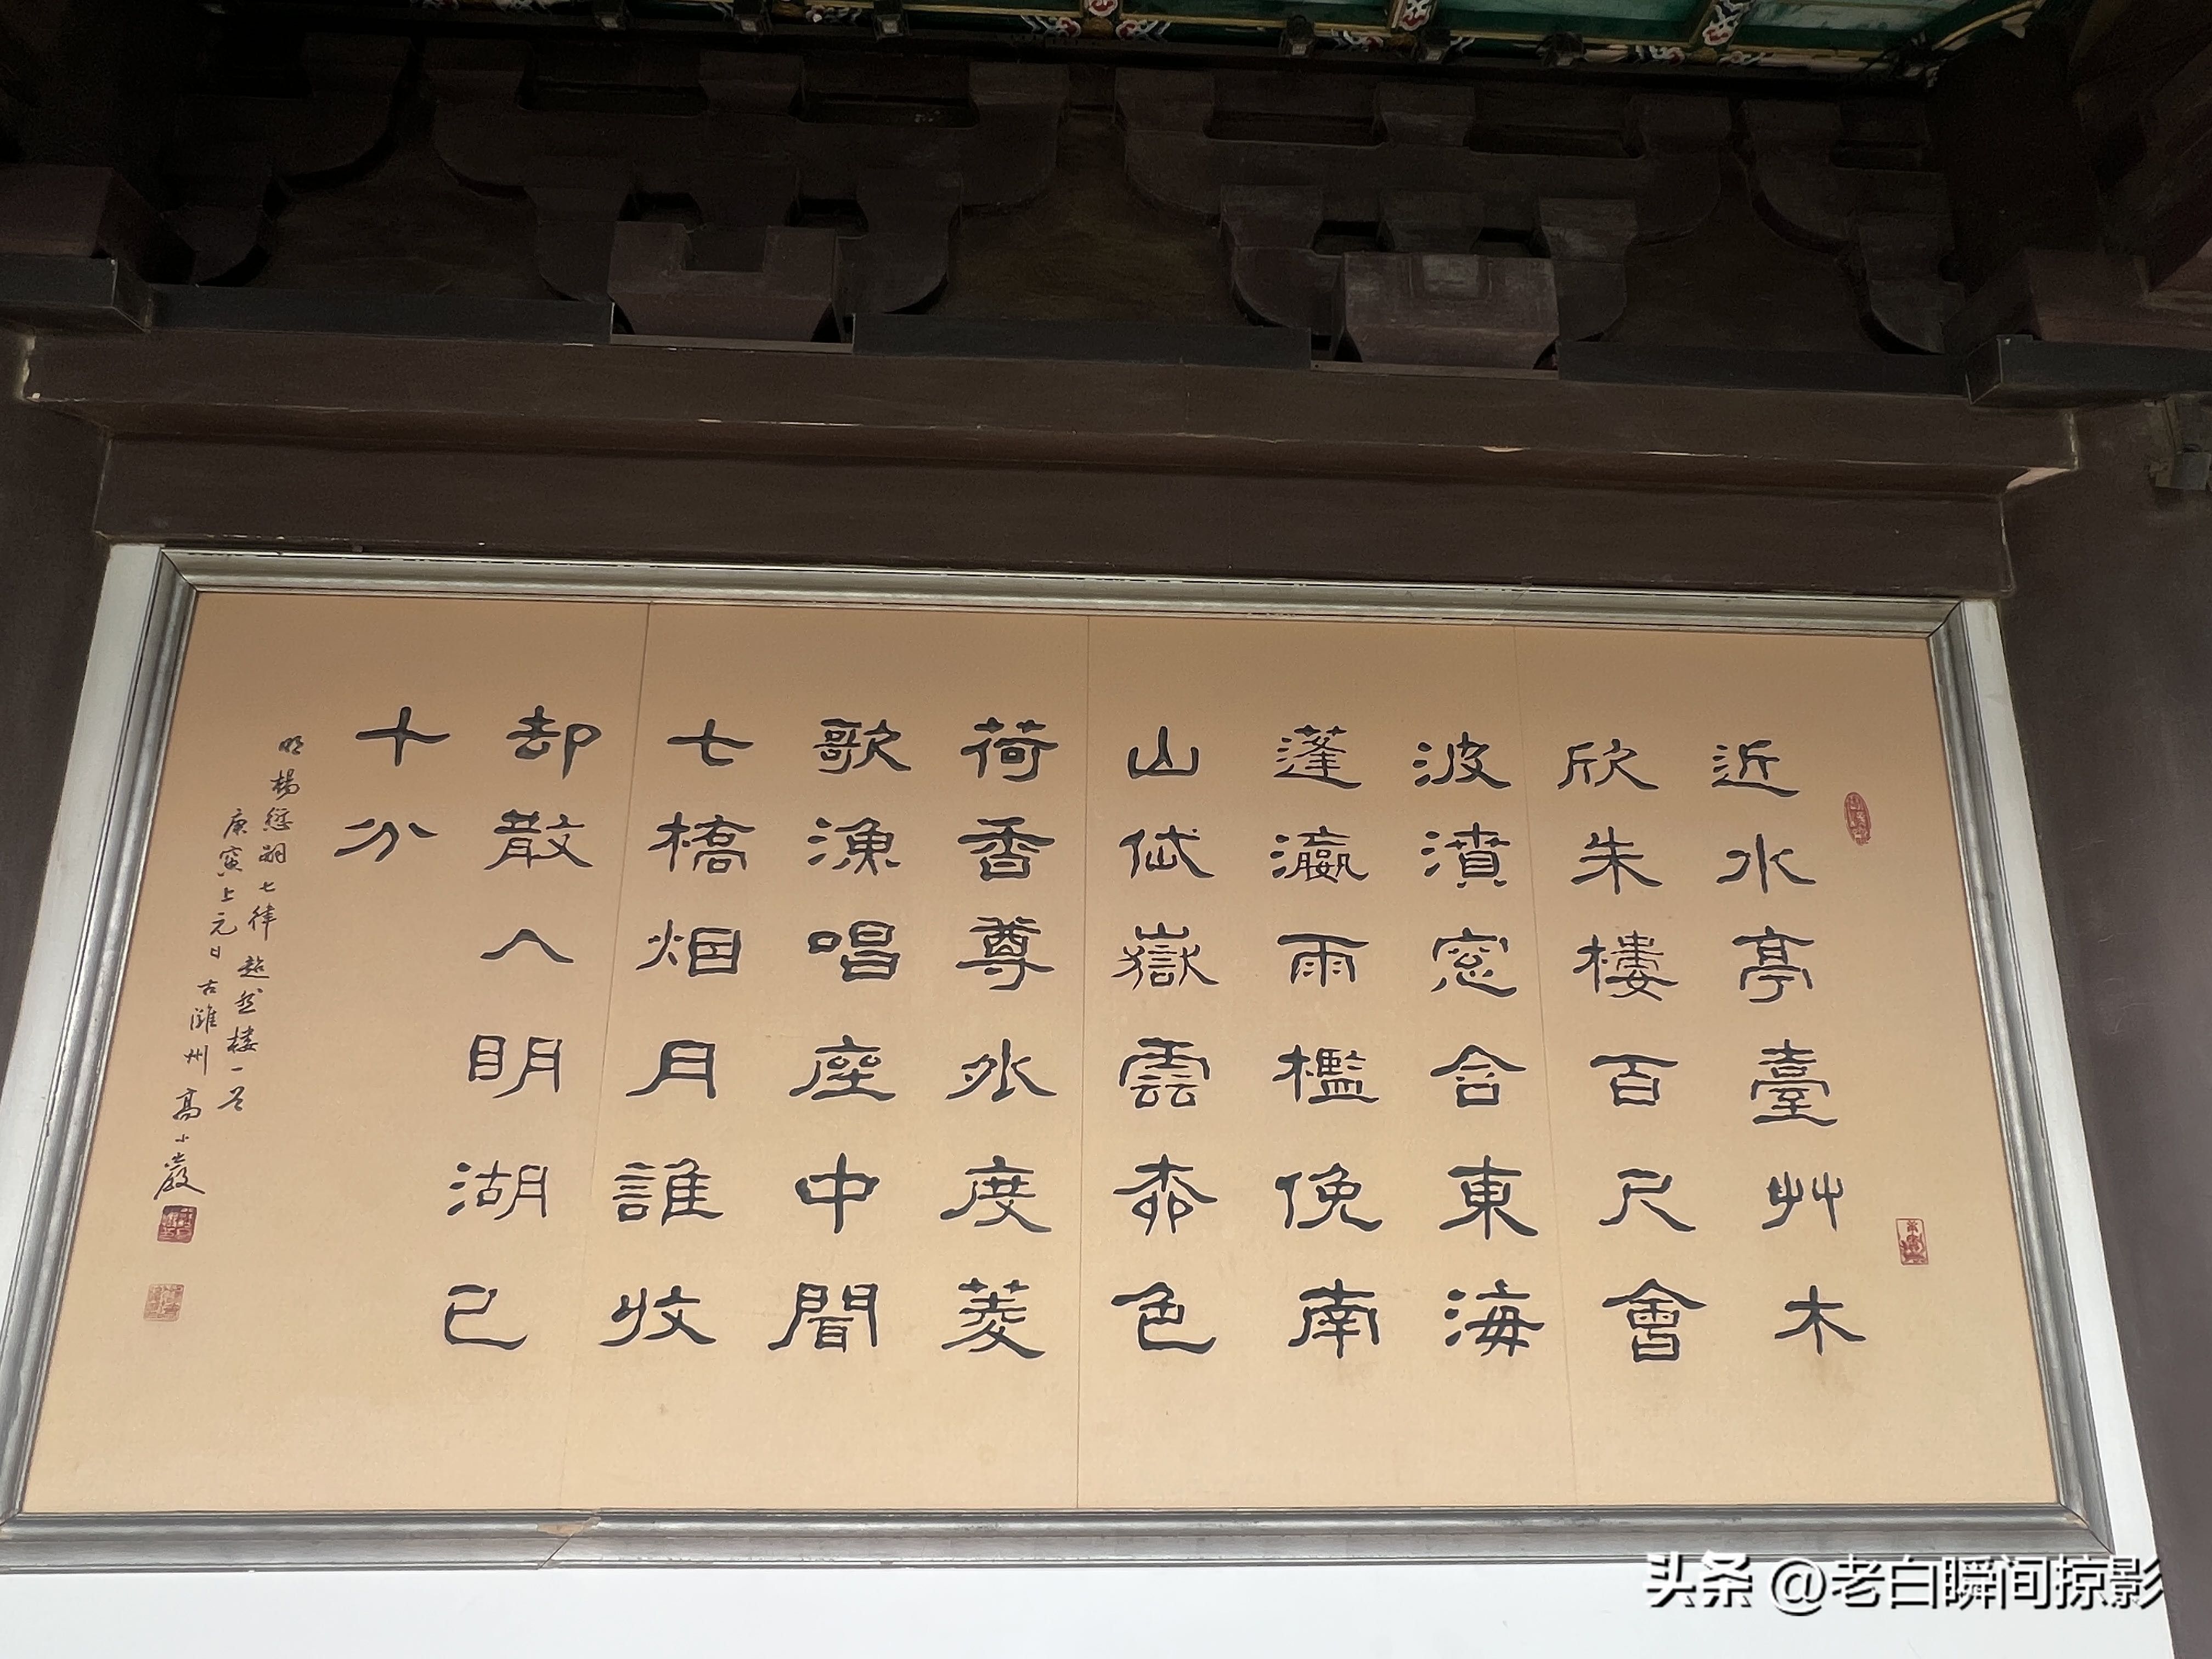 近水亭臺艸木
欣朱樓百尺會
波濆窓含東海
蓬瀛雨檻俛南
山岱嶽雲柰色
荷香尊外度菱
歌漁唱座中聞
七橋烟月誰收
却散入明湖已
十分
明楊愆嗣七律超然樓一首
庚寅上元日古濰州高小巖
头条 @老白瞬间掠影